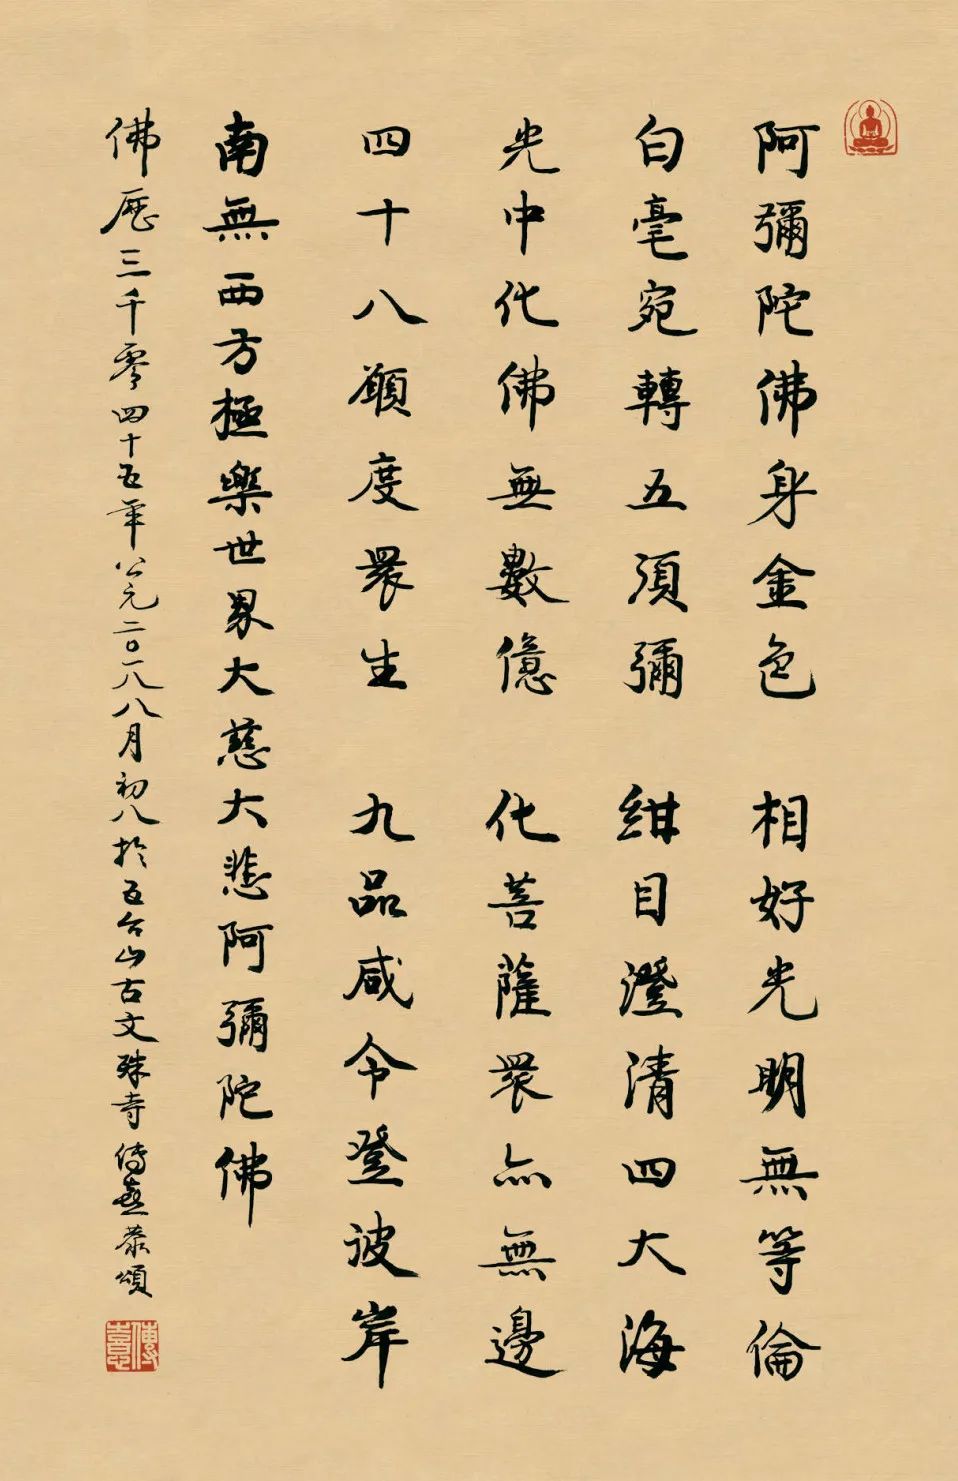 阿彌陀佛身金色 相好光明無等倫
白毫宛轉五須彌 紺目澄清四大海
光中化佛無數億 化菩薩眾亦無邊
四十八願度眾生 九品咸令登彼岸
南無西方極樂世界大慈大悲阿彌陀佛
佛歷三千零四十五年公元二〇一八八月初八於五台山古文殊寺傳熹恭頌
傳熹